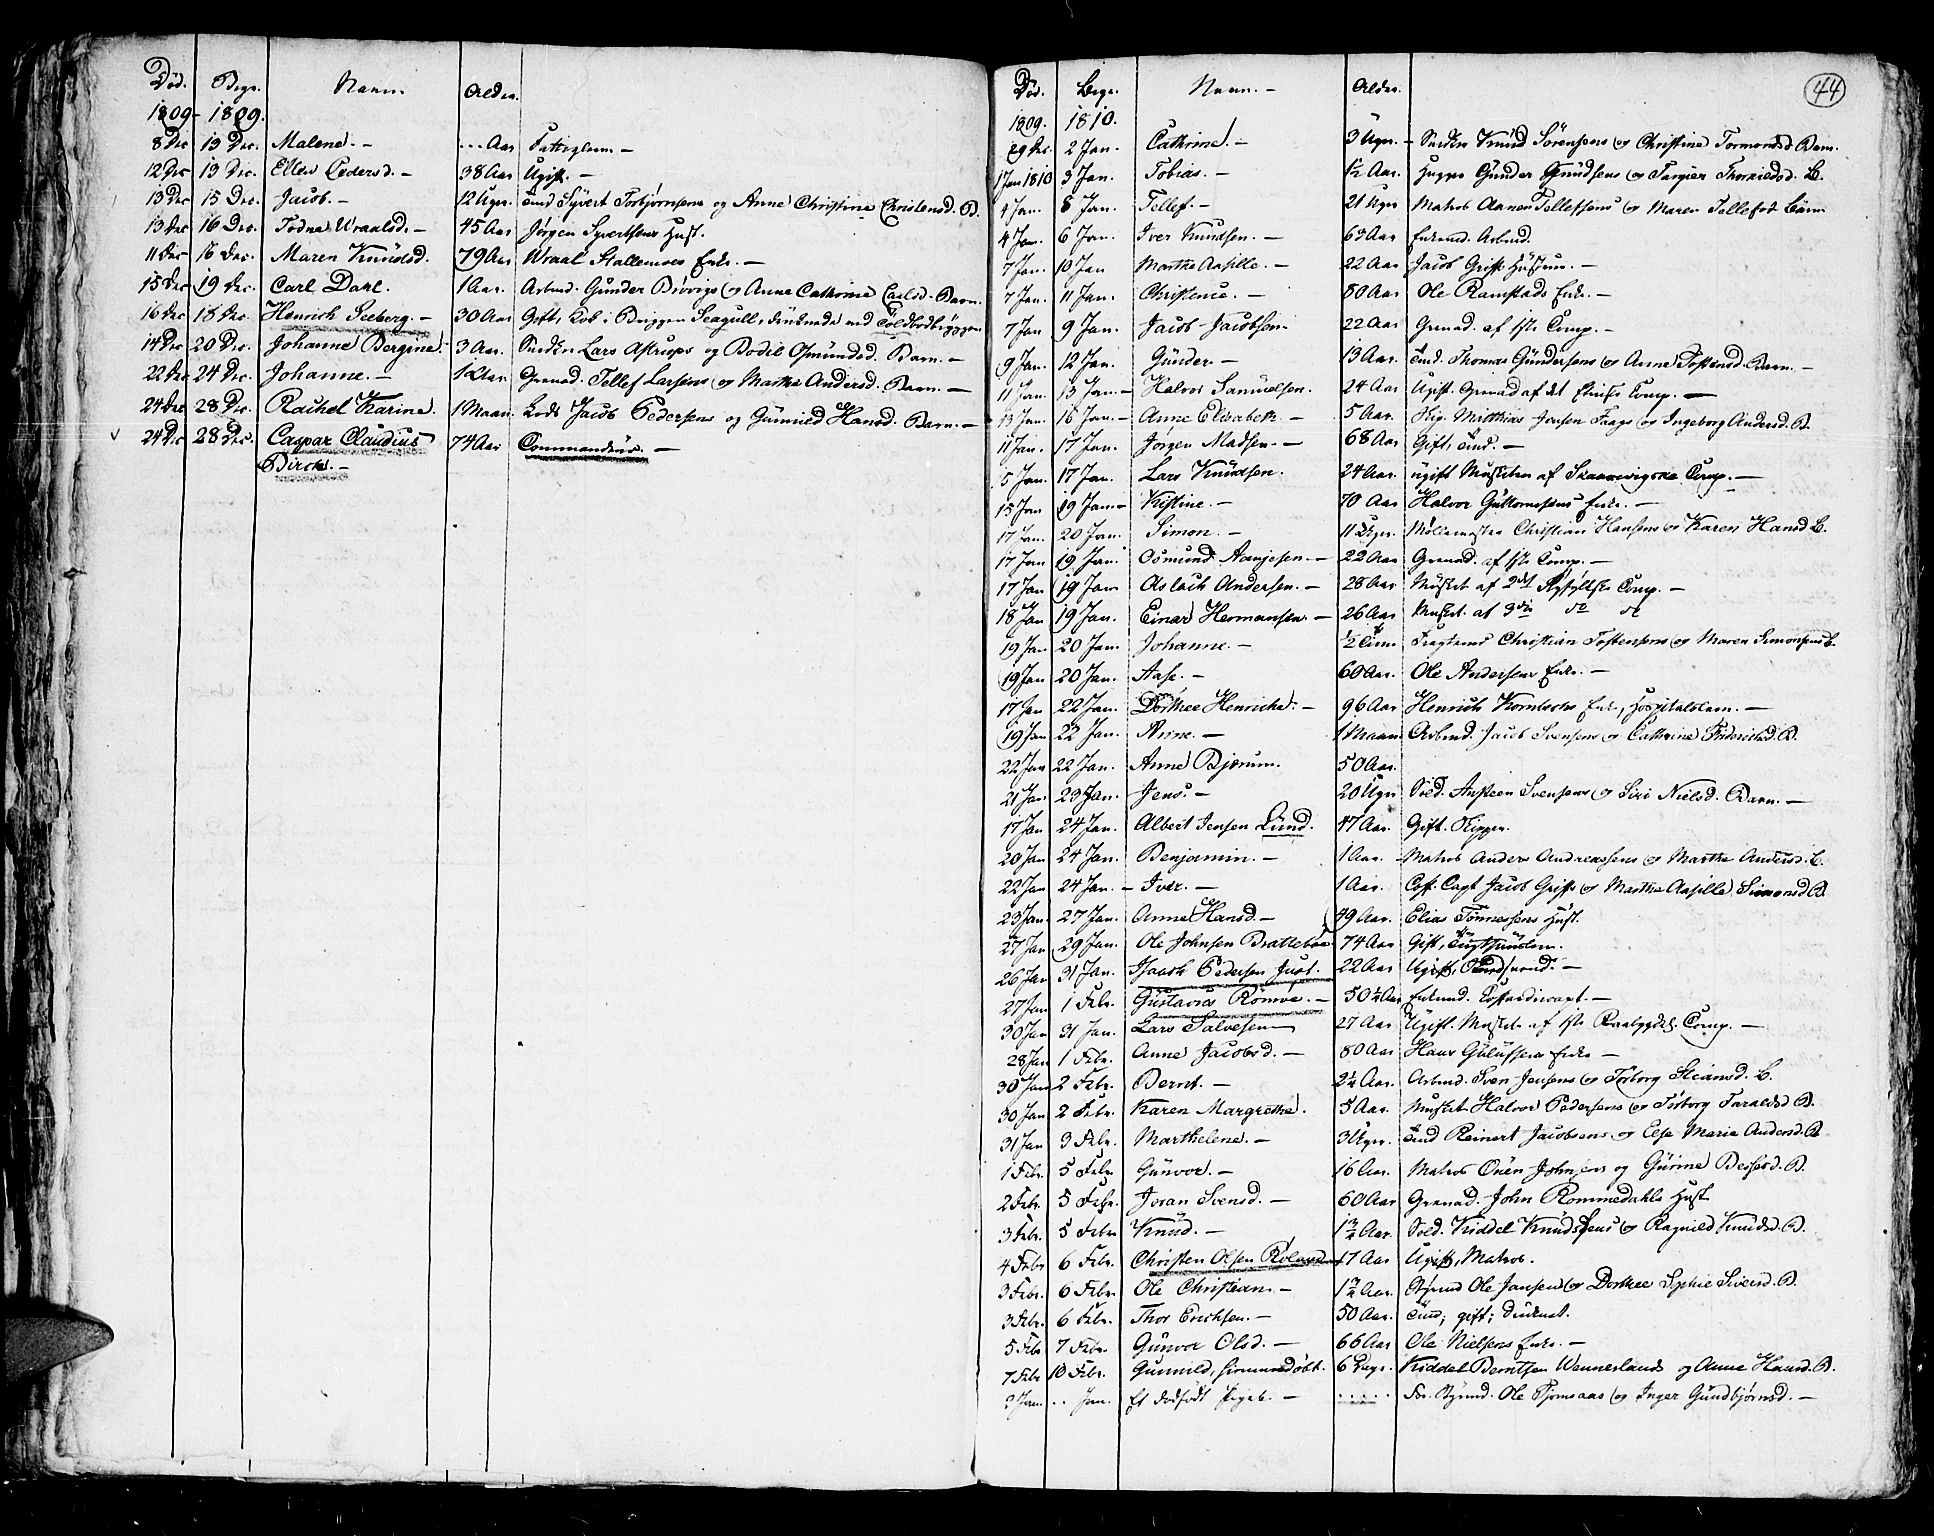 Død. Begr. Navn. Alder.
1809 - 1809.
8 Dec 13 Dec. Malene. - ... Aar Fattiglem. -
12 Dec 13 Dec. Ellen Pedersd. - 38 Aar Ugift. -
13 Dec 15 Dec. Jacob. - 12 Uger. Tind Syvert Torbjørnsens og Anne Christine Christensd. B.
13 Dec 16 Dec. Todne Wraalsd. - 45 Aar Jørgen Syvertsens Hust.
11 Dec 16 Dec. Maren Knüdsd. 79 Aar Wraal Stallemoes Enke. -
15 Dec 19 Dec. Carl Dahl. 1 Aar. Arbmd. Gunder og Anne Cathrine Carlsd. Barn.
16 Dec 18 Dec. Henrich Seeberg. - 30 Aar Gift, Kok i Briggen Seagull, druknede ved Toldbodbryggen
14 Dec 20 Dec. Johanne Bergine. 3 Aar. Snedker Lars Astrups og Bodil Osmundsd. Barn. -
22 Dec 24 Dec. Johanne. - Aar. Grenad. Tellef Larsens og Martha Andersd. Barn. -
24 Dec 28 Dec. Rachel Karine. 1 Maan. Lods Jacob Pedersens og Günnild Hansd. Barn. -
24 Dec 28 Dec. Caspar Claudius 74 Aar Commandeur. -
Birch. -
44
Død. Begr. Navn. - Alder.
1809. 1810.
29 Dec. 2 Jan. Cathrine. - 3 Uger. - Snedker Knüd Sörensens og Christine Tormodsd. Barn.
1 Jan 1810 3 Jan. Tobias. - 1/2 Aar. Günder Knüdsens og Targier Thorkildsd. B.
4 Jan. 8 Jan. Tellef. - 21 Uger Matros Aanen Tellefsens og Maren Tellefsd. Barn
4 Jan. 6 Jan. Iver Knudsen. - 63 Aar Enkemd. Arbmd.
7 Jan. 10 Jan Marthe Aasille. - 22 Aar Jacob Hustrue. -
7 Jan. 11 Jan. Christence. - 80 Aar Ole Ramstads Enke. -
7 Jan 9 Jan. Jacob Jacobsen. 22 Aar Grenad. af 1ste Comp. -
9 Jan. 12 Jan. Günder. - 13 Aar. Tind. Thomas Gündersens og Anne Tostensd. Barn. -
11 Jan. 13 Jan. - Halvor Samuelsen. 24 Aar Ugift Grenad af det Comp. -
13 Jan. 16 Jan. - Anne Elisabeth - 5 Aar. Matthias Jensen og Ingeborg Andersd. B.
11 Jan. 17 Jan. Jørgen Madsen. - 68 Aar Gift, Tind. -
5 Jan. 17 Jan. Lars Knüdsen. 24 Aar. ugift Musketer af Comp. -
15 Jan 19 Jan. - Kistine. - 70 Aar Halvor Guttormsens Enke. -
17 Jan. 20 Jan. Simon. - 11 Uger. Møllemester Christian Hansens og Karen Hansd. B.
17 Jan 19 Jan. Osmund Aanjesen. - 22 Aar Grenad. af 1ste Comp. -
17 Jan 19 Jan Aslach Andersen. - 28 Aar Musket af 2det Ryfylkske Comp. -
18 Jan 19 Jan. Einar Hermansen - 26 Aar Musket. af 3die do do
19 Jan. 20 Jan. Johanne. - 1/2 Christian Tostensens og Maren Simonsens B.
19 Jan 20 Jan. Aase. - 60 Aar. Ole Andersens Enke. -
17 Jan 22 Jan. Dorthee Henrichsd. - 96 Aar Henrich Kornbechs Enke, Hospitalslem. -
19 Jan 22 Jan. Anne. - 1 Maan. Arbmd. Jacob Svensens og Cathrine Friderichsd. B.
22 Jan 22 Jan. Anne Bjørum. 50 Aar.
21 Jan 23 Jan. Jens. - 20 Uger Sold. Ansteen Svensens og Siri Nielsd. Barn. -
17 Jan 24 Jan. Albert Jensen Lünd. 47 Aar. Gift. Skipper.
20 Jan 24 Jan. Benjamin. - 1 Aar. - Matros Anders Andreassens og Marthe Andersd. B.
22 Jan 24 Jan. - Iver. - 1 Aar. Jacob og Martha Aasille Simonsd. B.
23 Jan. 27 Jan. Anne Hansd. - 49 Aar. Elias Tønnessens Hust.
27 Jan 29 Jan. Ole Johnsen Brattebøe 74 Aar Gift,
26 Jan 31 Jan. Isaach Pedersen Just. 22 Aar Ugift,
27 Jan 1 Febr. Gustavus Römoe. - 50 1/2 Aar Enkemd. -
30 Jan 31 Jan. Lars Salvesen 27 Aar Ugift. Musket. af 1ste Raabygdel. Comp. -
28 Jan 1 Febr. Anne Jacobsd. - 80 Aar Hans Enke -
30 Jan 2 Febr. Bernt. - 2 1/4 Aar. Arbmd. Sven Jensens og Torborg B.
30 Jan 2 Febr. Karen Margrethe. 5 Aar. Musket. Halvor Pedersens og Torborg Taraldsd. B.
31 Jan 3 Febr. Marthelene. - 3 Uger. Tind Reinert Jacobsens og Else Maria Andersd. B
1 Febr. 5 Febr Gunvor. - 16 Aar. Matros Ouen Johnsens og Gürine B.
2 Febr. 5 Febr. Joran Svensd. - 60 Aar Grenad. John Rommedahls Hust
3 Febr. 5 Febr Knüd. - 1 3/4 Aar. Sold. Kiddel Knüdsens og Ragnild Knudsd. B.
4 Febr 6 Febr. Christen Olsen Roland 17 Aar Ugift, Matros.
3 Febr. 6 Febr. Ole Christian. - 1 3/4 Aar. Styrmd Ole Jansen og Dorthee Sophie Siversd. B.
3 Febr. 6 Febr. Thor Erichsen. - 50 Aar. Tind; gift; druknet.
5 Febr 7 Febr. Gunvor Olsd. - 66 Aar Ole Nielsens Enke. -
7 Febr 10 Febr. Gunnild, hiemmedøbt. 6 Dage. Kiddel Berntsen Wennerslands og Anne Hansd. B.
3 Jan. .. Jan. Et dødfødt Pigeb. - ..... Ole Tjomsaas og Inger Gundbjørnsd. -